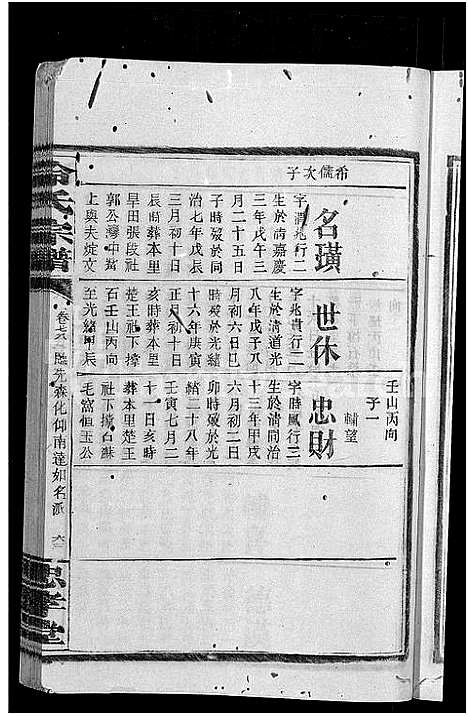 希儒次子
名璜
字渭兆行二
生於清嘉慶
三年戊午三
月二十五日
子時歿於同
治七年戊辰
三月初十日
辰時葬本里
早田張段社
郭公灣中㙮
上與夫婞文
世休
字兆貴行二
生於清道光
八年戊子八
月初六日巳
時歿於光緒
十六年庚寅
正月初十日
亥時葬本里
楚王社下㙮
石壬山丙向
至光緒甲辰
壬山丙向
子一
輔望
忠財
字時鳳行三
生於清同治
十三年甲戌
六月初二日
卯時歿於光
緒二十八年
壬寅七月二
十一日亥時
葬本里楚王
社下㙮白蘇
毛窩恒玉公
氏宗譜
臨先森化仰南蓬如名派
忠孝堂